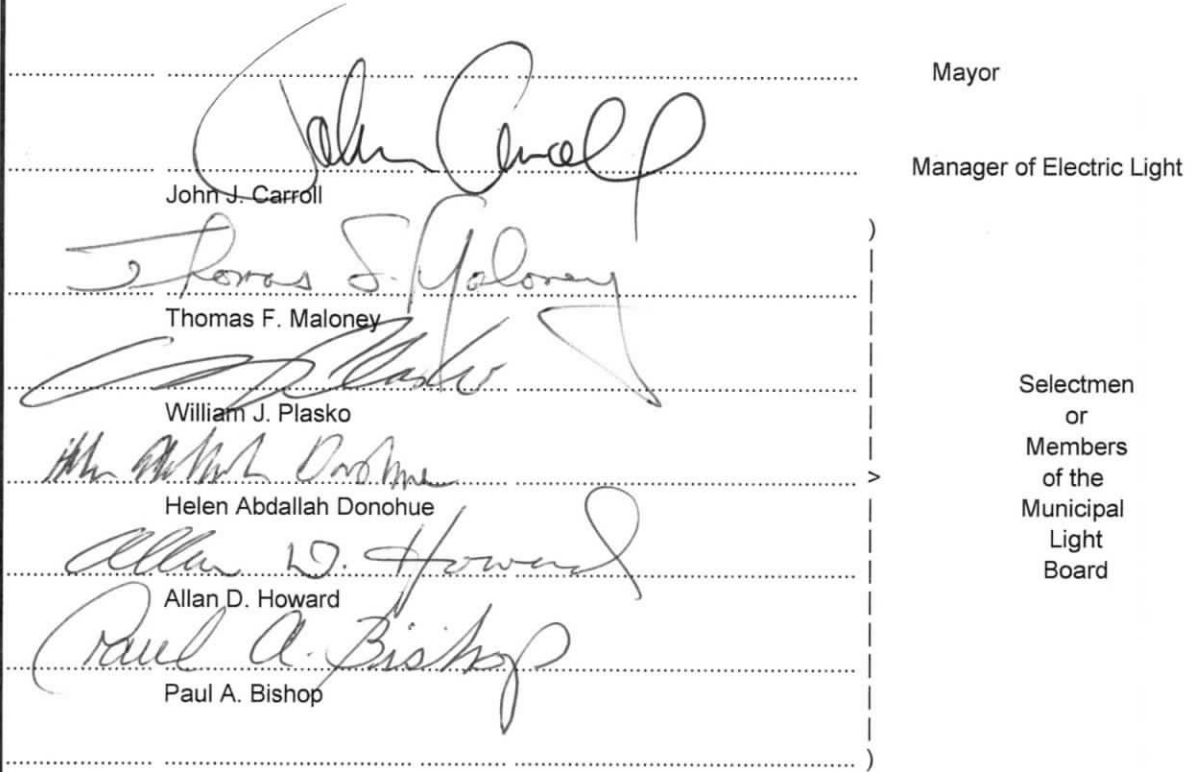 Mayor
John Carroll
Manager of Electric Light
John J. Carroll
Thomas F. Maloney
Thomas F. Maloney
Wm J Plasko
William J. Plasko
Helen Abdallah Donohue
Helen Abdallah Donohue
Allan D. Howard
Allan D. Howard
Paul A. Bishop
Paul A. Bishop
Selectmen
or
Members
of the
Municipal
Light
Board